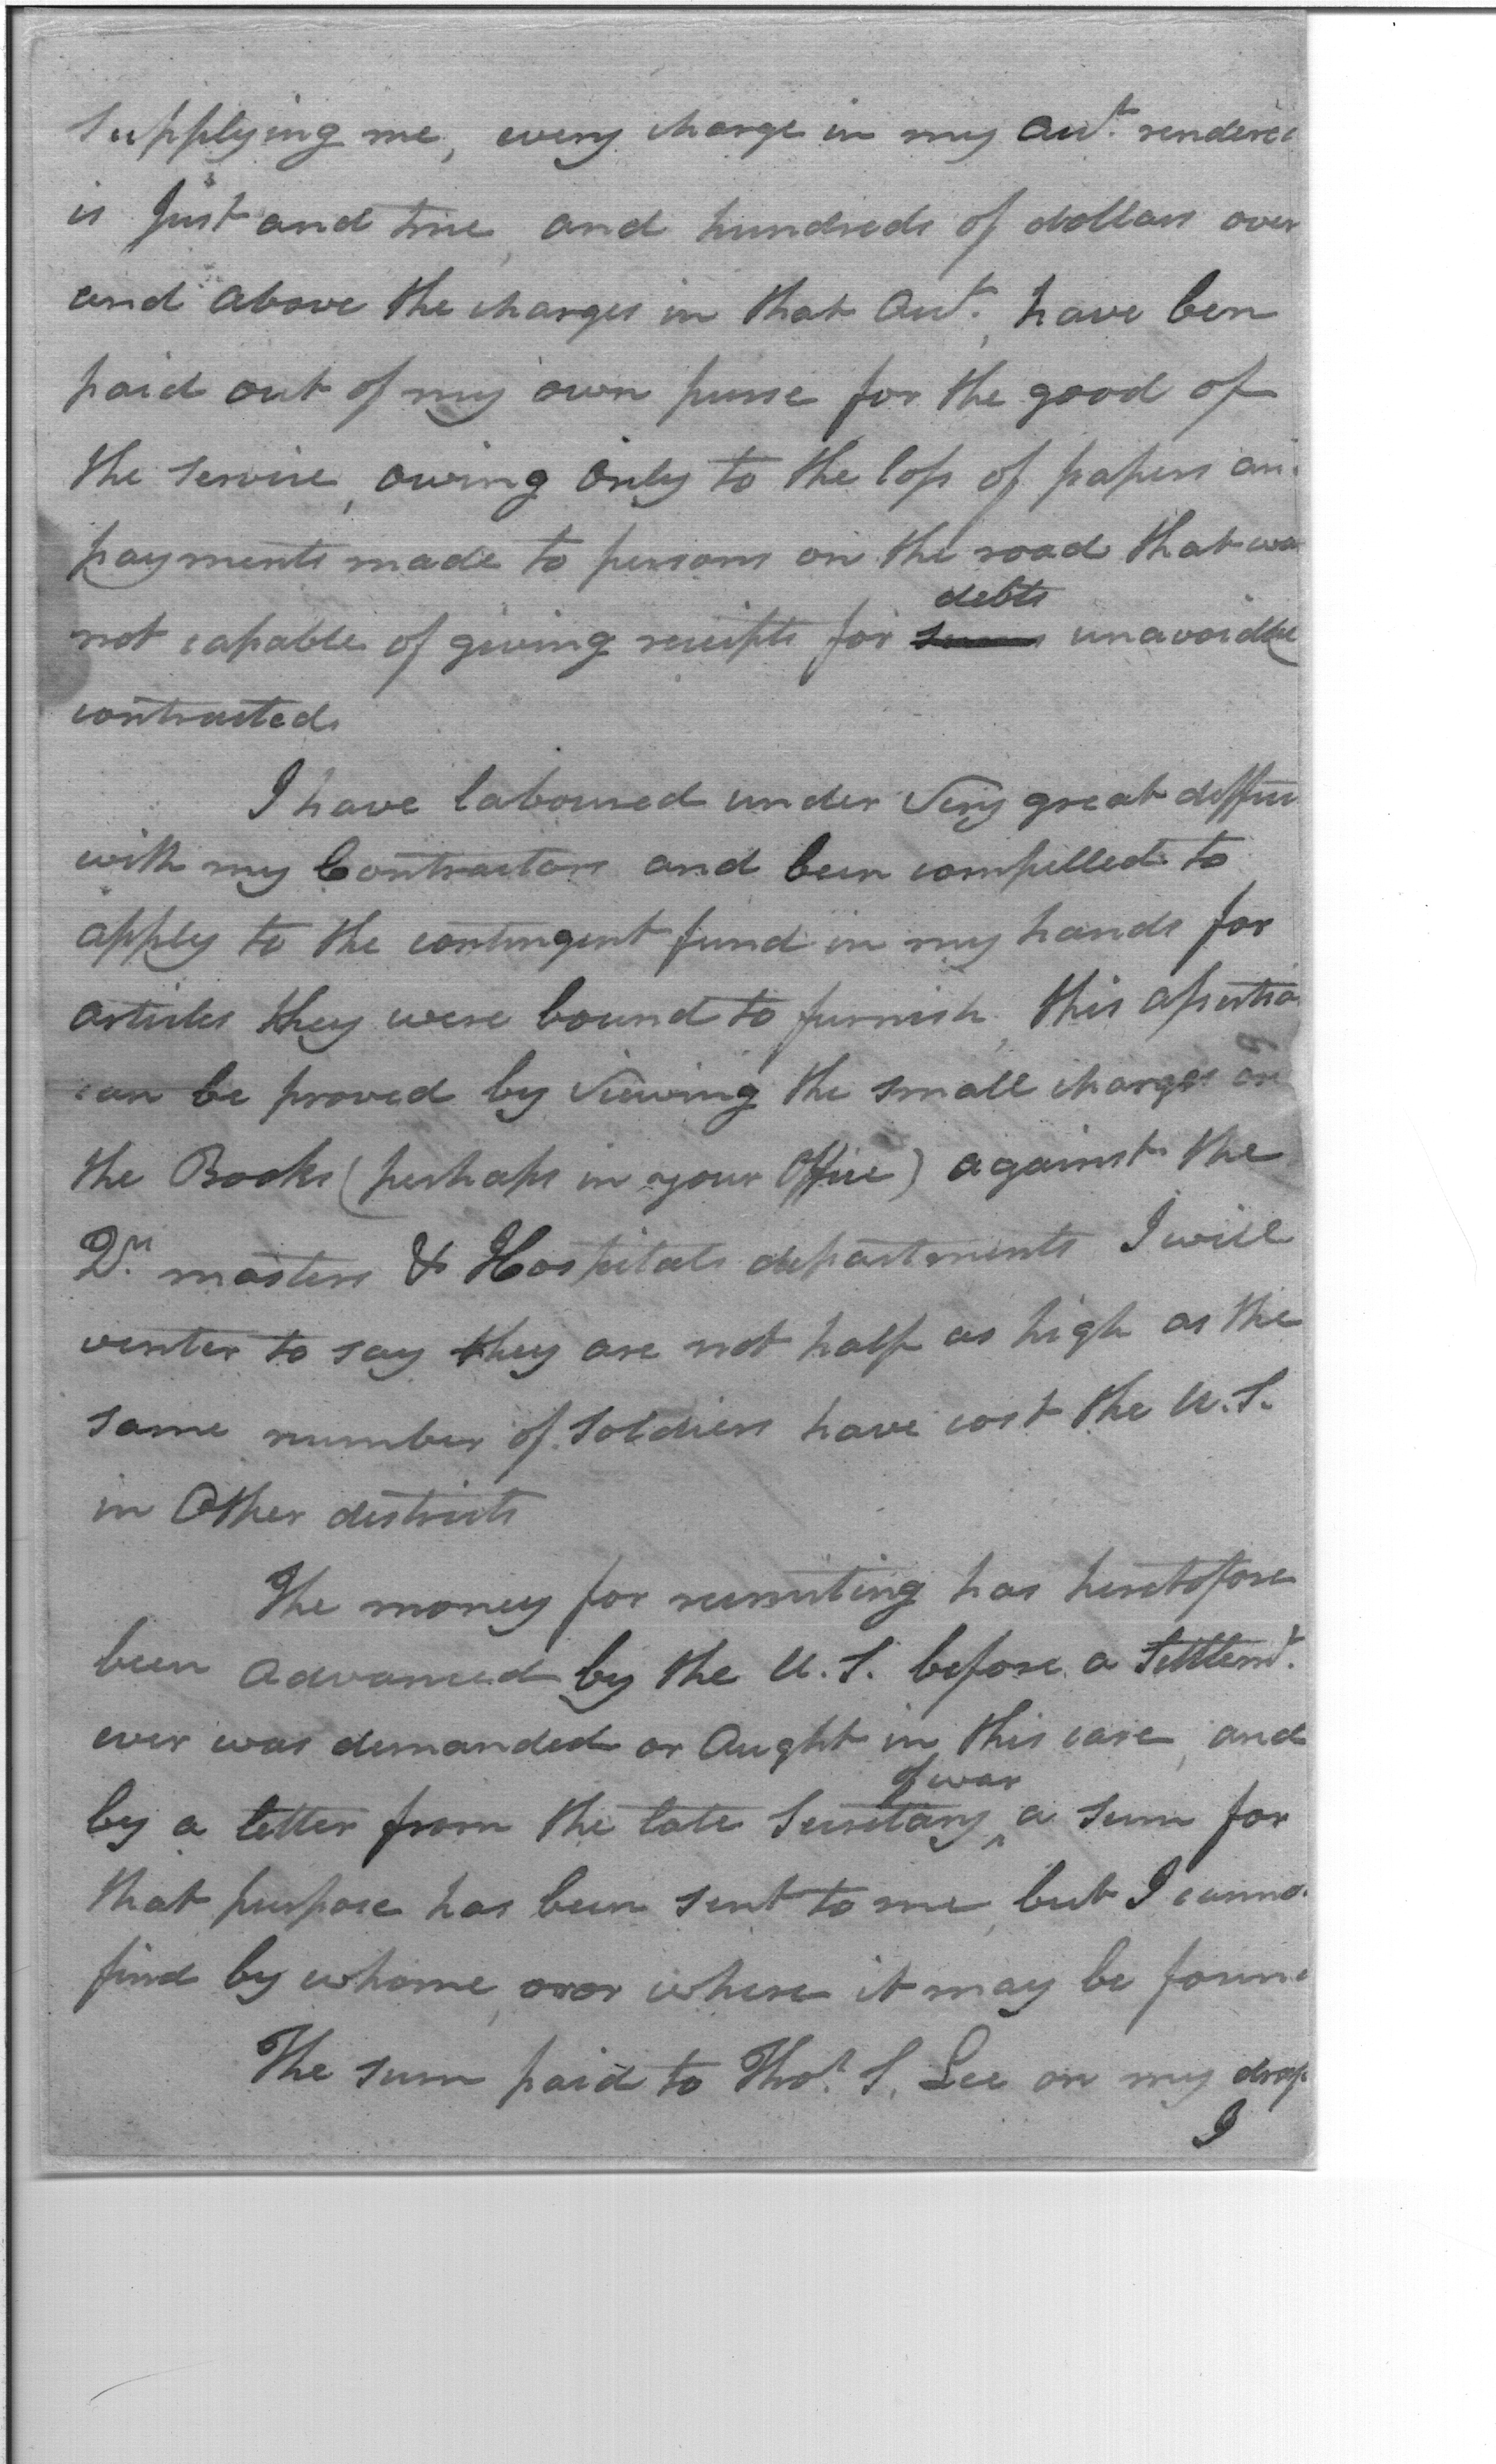 supplying me, every charge in my Acct. rendered
is Just and true, and hundreds of dollars over
and above the charges in that Acct., have ben
paid out of my own purse for the good of
the service, owing only to the loss of papers and
payments made to persons on the road that was
debts
not capable of giving receipts for sums unavoidbly
contracted
I have laboured under Very great
with my Contractors and been compelled to
apply to the contingent fund in my hands for
articles they were bound to furnish, this assertion
can be proved by viewing the small charges on
the Books (perhaps in your Office) against the
Qr. masters & Hospitals departments I will
venter to say they are not half as high as the
same number of Soldiers have cost the U.S.
in Other districts
The money for recruiting has heretofore
been advanced by the U.S. before a Settlemt.
ever was demanded or Aught in this case, and
of war
by a letter from the late Secretary ^ a sum for
that purpose has been sent to me, but I cannot
find by whome, or where it may be found
The sum paid to Thos. S. Lee on my draft
I